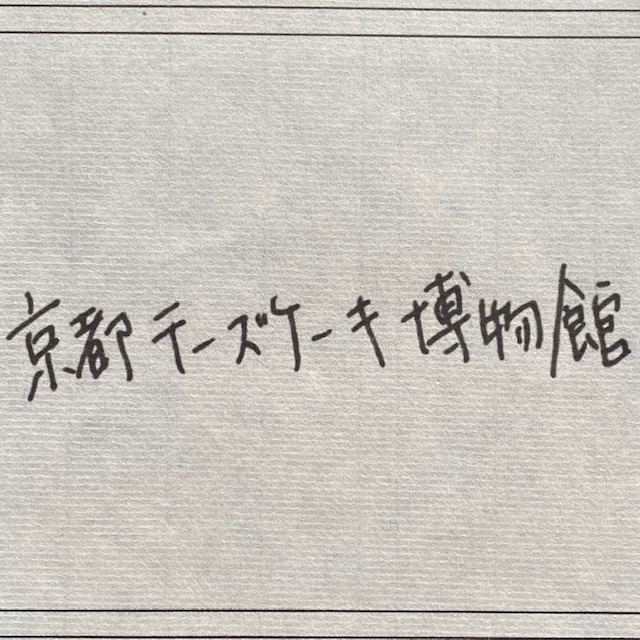 京都チーズケーキ博物館